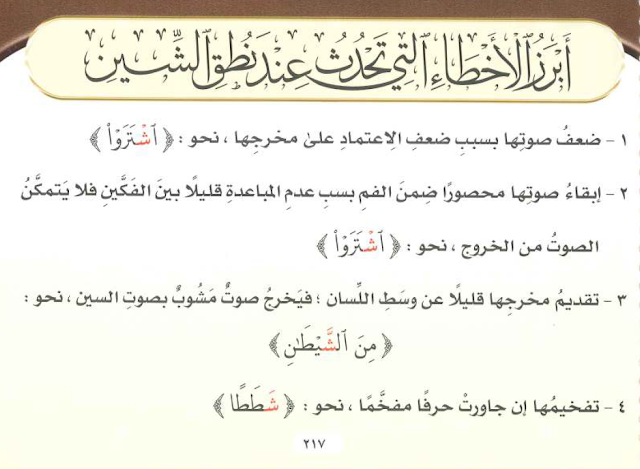 أَبْرَزُ ٱلْأَخْطَاءِ ٱلَّتِي تَحْدُثُ عِنْدَ نُطْقِ ٱلشِّينِ
١ - ضعفُ صوتِها بسببِ ضعفِ الِاعتمادِ علىٰ مخرجِها ، نحو : ﴿ ٱشْتَرَوُاْ ﴾
٢ - إبقاءُ صوتِها محصورًا ضِمنَ الفمِ بسبِ عدمِ المباعدةِ قليلًا بينَ الفَكَّينِ فلا يَتمكَّنُ
الصوتُ من الخروجِ ، نحو : ﴿ ٱشْتَرَوُاْ ﴾
٣ - تقديمُ مخرجِها قليلًا عن وسَطِ اللِّسان ؛ فيَخرجُ صوتٌ مَشُوبٌ بصوتِ السين ، نحو :
﴿ مِنَ ٱلشَّيْطَٰنِ ﴾
٤ - تفخيمُها إن جاورتْ حرفًا مفخَّمًا ، نحو : ﴿ شَطَطًا ﴾
٢١٧